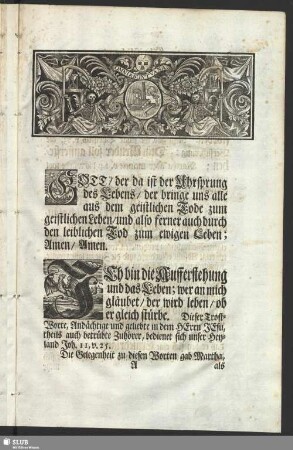 GOTT / der da ist der Uhrsprung
des Lebens / der bringe uns alle
aus dem geistlichen Tode zum
geistlichen Leben / und also ferner auch durch
den leiblichen Tod zum ewigen Leben;
Amen / Amen.
ICh bin die Aufferstehung
und das Leben; wer an mich
gläubet / der wird leben / ob
er gleich stürbe. Dieser Trost-
Worte, Andächtige und geliebte in dem HErrn JEsu,
theils auch betrübte Zuhörer, bedienet sich unser Hey-
land Joh. 11, v. 25.
Die Gelegenheit zu diesen Worten gab Martha,
A als
SLUB